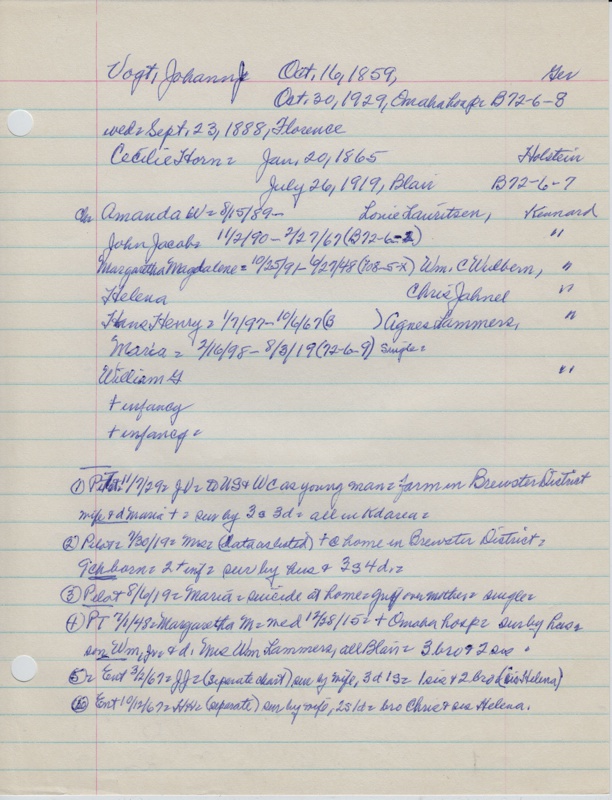 Vogt, Johann J Oct. 16, 1859, Ger
Oct. 30, 1929, Omaha hosp = B72-6-8
wed = Sept. 23, 1888, Florence
Cecilie Horn = Jan. 20, 1865 Holstein
July 26, 1919, Blair B72-6-7
Ch = Amanda W = 8/15/89- Louie Lauritsen, Kennard
John Jacob = 11/2/90 - 2/27/67 (B72-6-2) "
Margaretha Magdalene = 10/25/91 - 6/27/48 (708-5-X) Wm. C Wulbern, "
Helena Chris Jahnel "
Hans Henry = 1/7/97 - 10/6/67 (B ) Agnes Lammers, "
Maria = 2/16/98 - 8/3/19 (72-6-9) single =
William G "
+ infancy
+ infancy =
① Pilot 11/7/29 = JV = to US & WC as young man = farm in Brewster District
wife & d Maria + = sur by 3s 3d = all in Kd area =
② Pilot = 7/30/19 = Mrs = (data as listed) + @ home in Brewster District =
9 ch born = 2 + inf = sur by hus & 3s 4d. =
③ Pilot 8/6/19 = Maria = suicide at home = grief over mother = single =
④ PT 7/1/48 = Margaretha M = med 12/28/15 = + Omaha hosp = sur by hus =
son Wm, Jr = & d. Mrs Wm Lammers, all Blair = 3 bro + 2 sis "
⑤ = Ent 3/2/67 = JJ = (separate chart) sur by wife, 3d 1s = 1 sis & 2 bro (sis Helena)
⑥ Ent 10/12/67 = HH = (separate) sur by wife, 2s 1d = bro Chris & sis Helena.